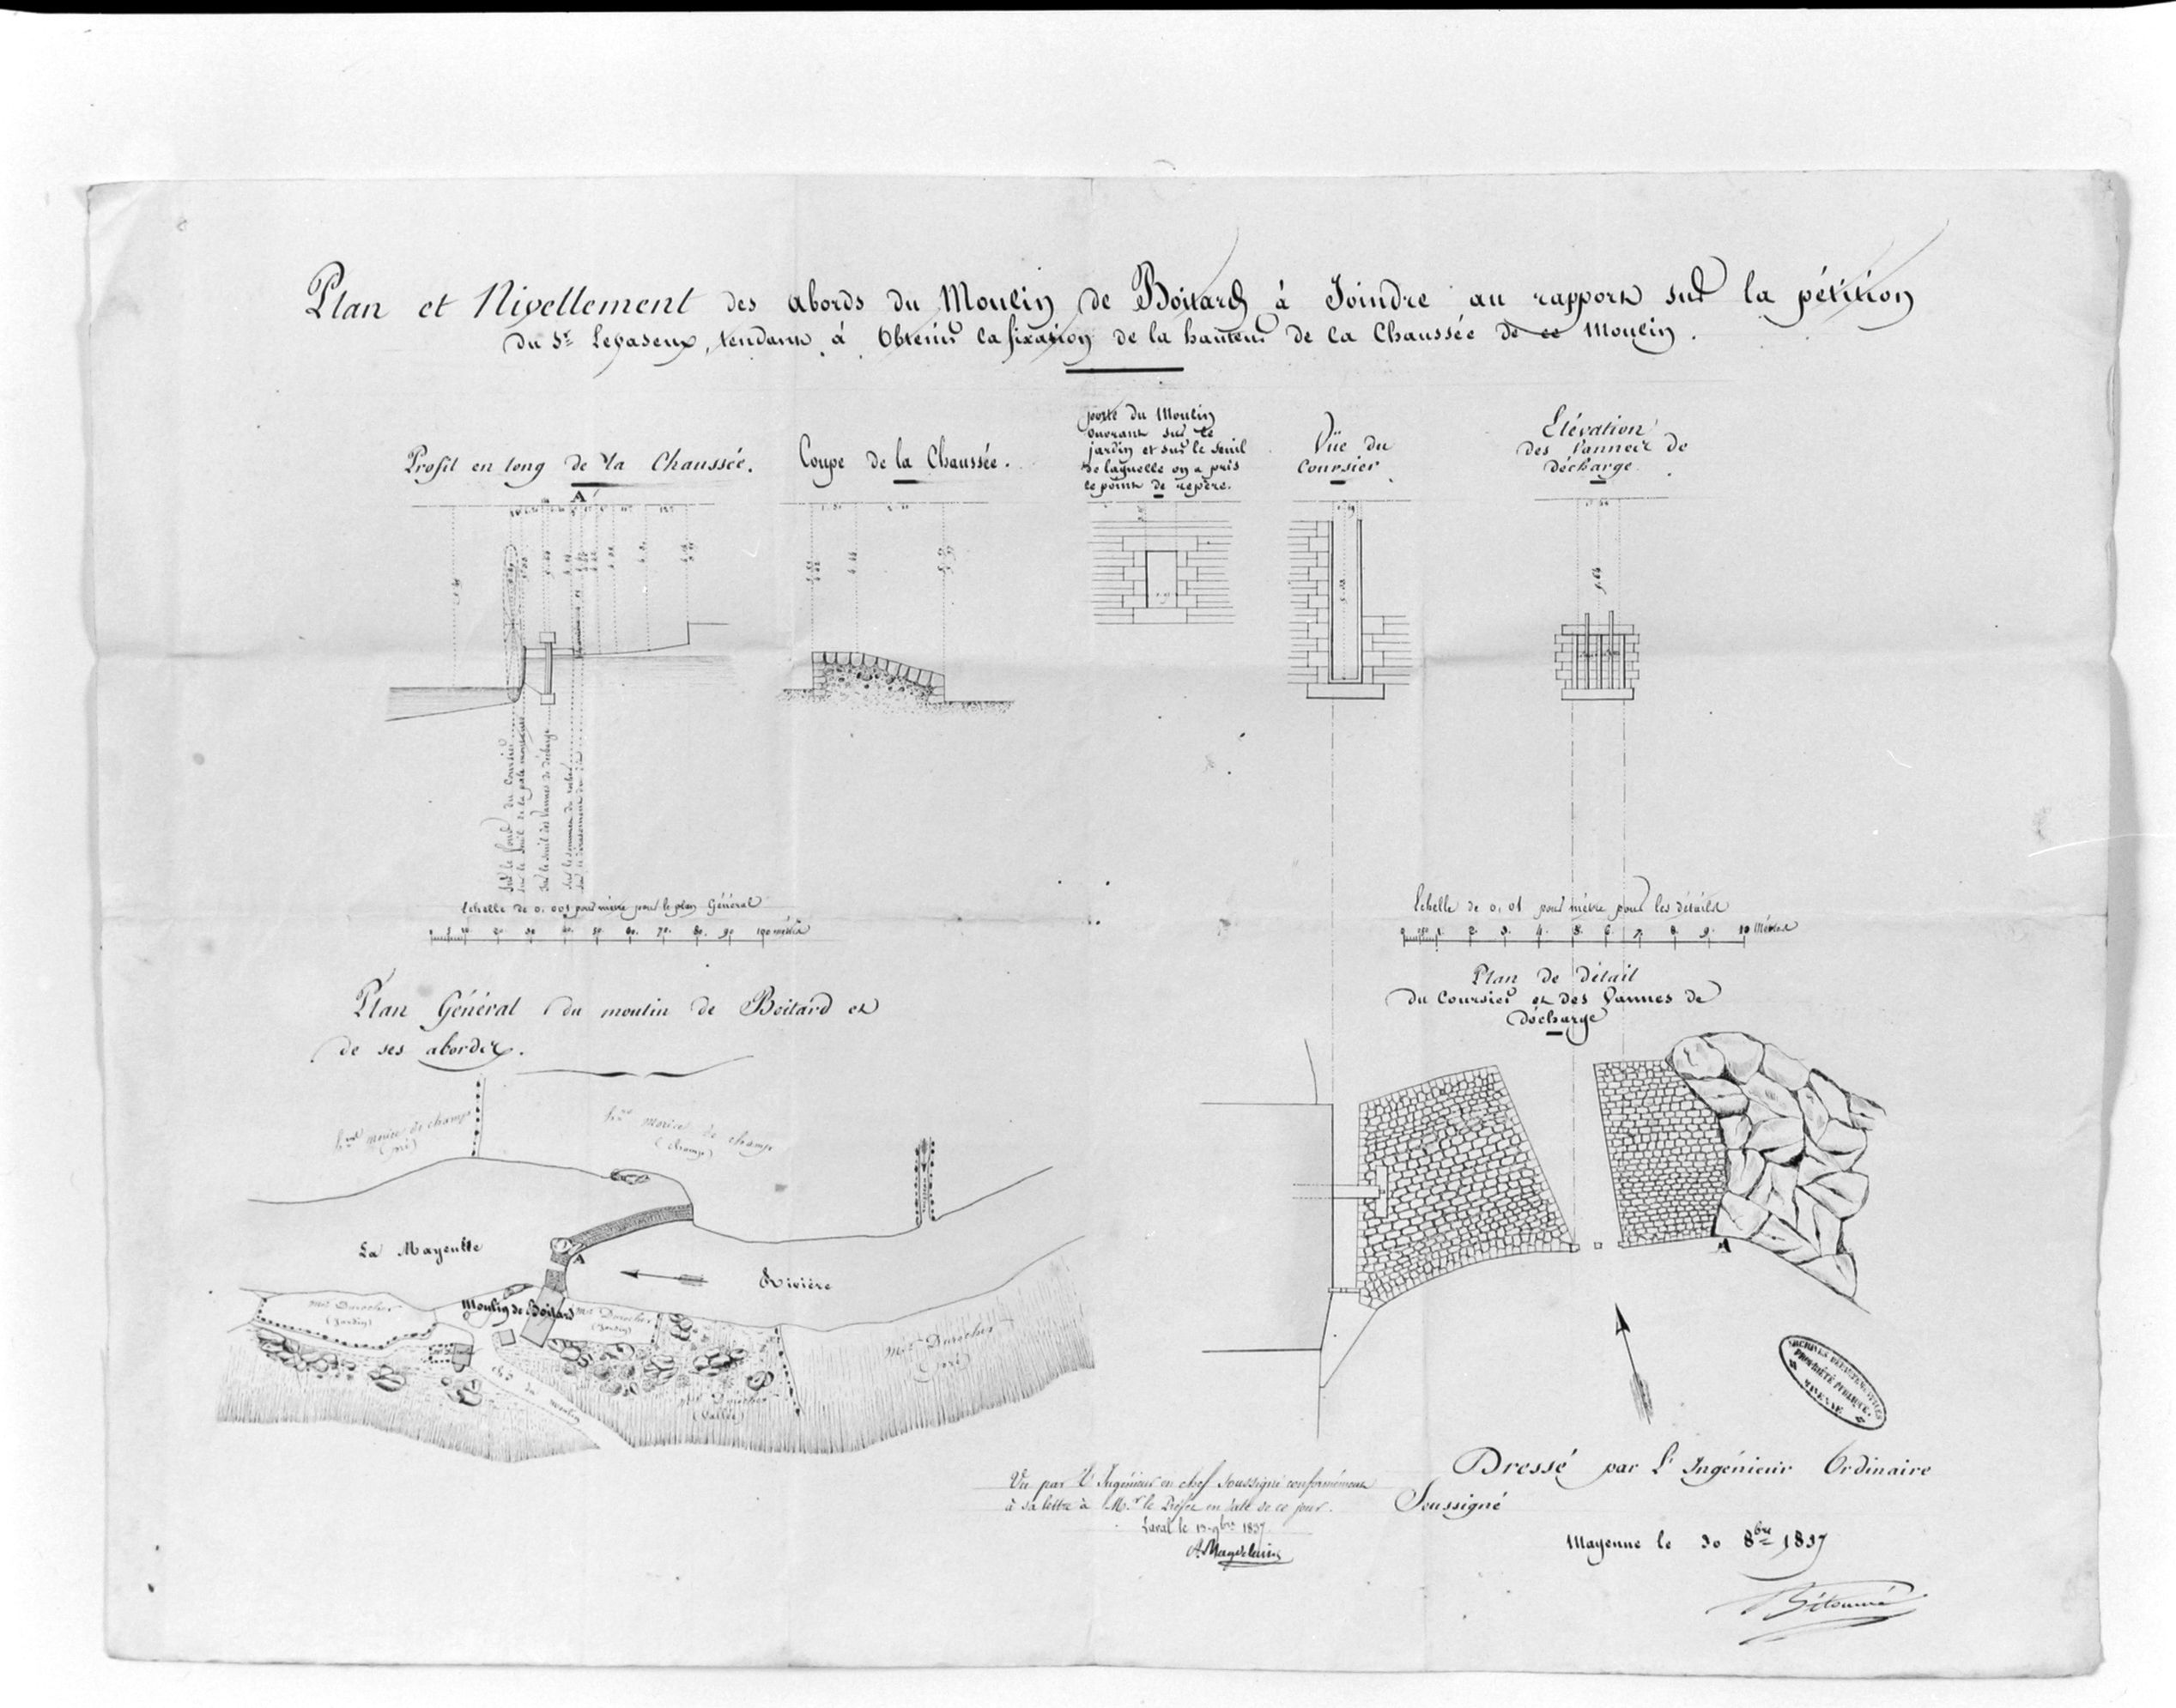 Plan et Nivellement des abords du Moulin de Boitard à Joindre au rapport sur la pétition
du Sr Levaseux, tendant à Obtenir la fixation de la hauteur de la Chaussée de ce Moulin.
Profil en long de la Chaussée.
Coupe de la Chaussée.
porte du Moulin
ouvrant sur le
jardin et sur le seuil
de laquelle on a pris
le point de repère.
Vüe du
Coursier
Elévation
des Vannes de
décharge
A
5.64
sur le fond du Coursier
sur le seuil de la
sur le seuil des Vannes de décharge
sur le sommet du rocher
sur le
Echelle de 0.001 pour mètre pour le plan Général
10. 20. 30 40. 50. 60. 70. 80. 90 100 mètres
Echelle de 0,01 pour mètre pour les détails
0 1. 2. 3. 4. 5. 6. 7. 8. 9. 10 Mètres
Plan Général du moulin de Boitard et
de ses abords.
Plan de détail
du Coursier et des Vannes de
décharge
morice de champs
(pré)
morice de champs
(champ)
La Mayenne
A
Rivière
Moulin de Boitard
Durocher
(Jardin)
Durocher
(Jardin)
Durocher
(pré)
Durocher
(Vallée)
chin du moulin
A
ARCHIVES DÉPARTEMENTALES
PROPRIÉTÉ PUBLIQUE
MAYENNE
Vu par l'Ingénieur en chef Soussigné conformément
à sa lettre à Mr le Préfet en date de ce jour.
Laval le 13 9bre 1837
A. Magdelaine
Dressé par L'Ingénieur Ordinaire
Soussigné
Mayenne le 30 8bre 1837